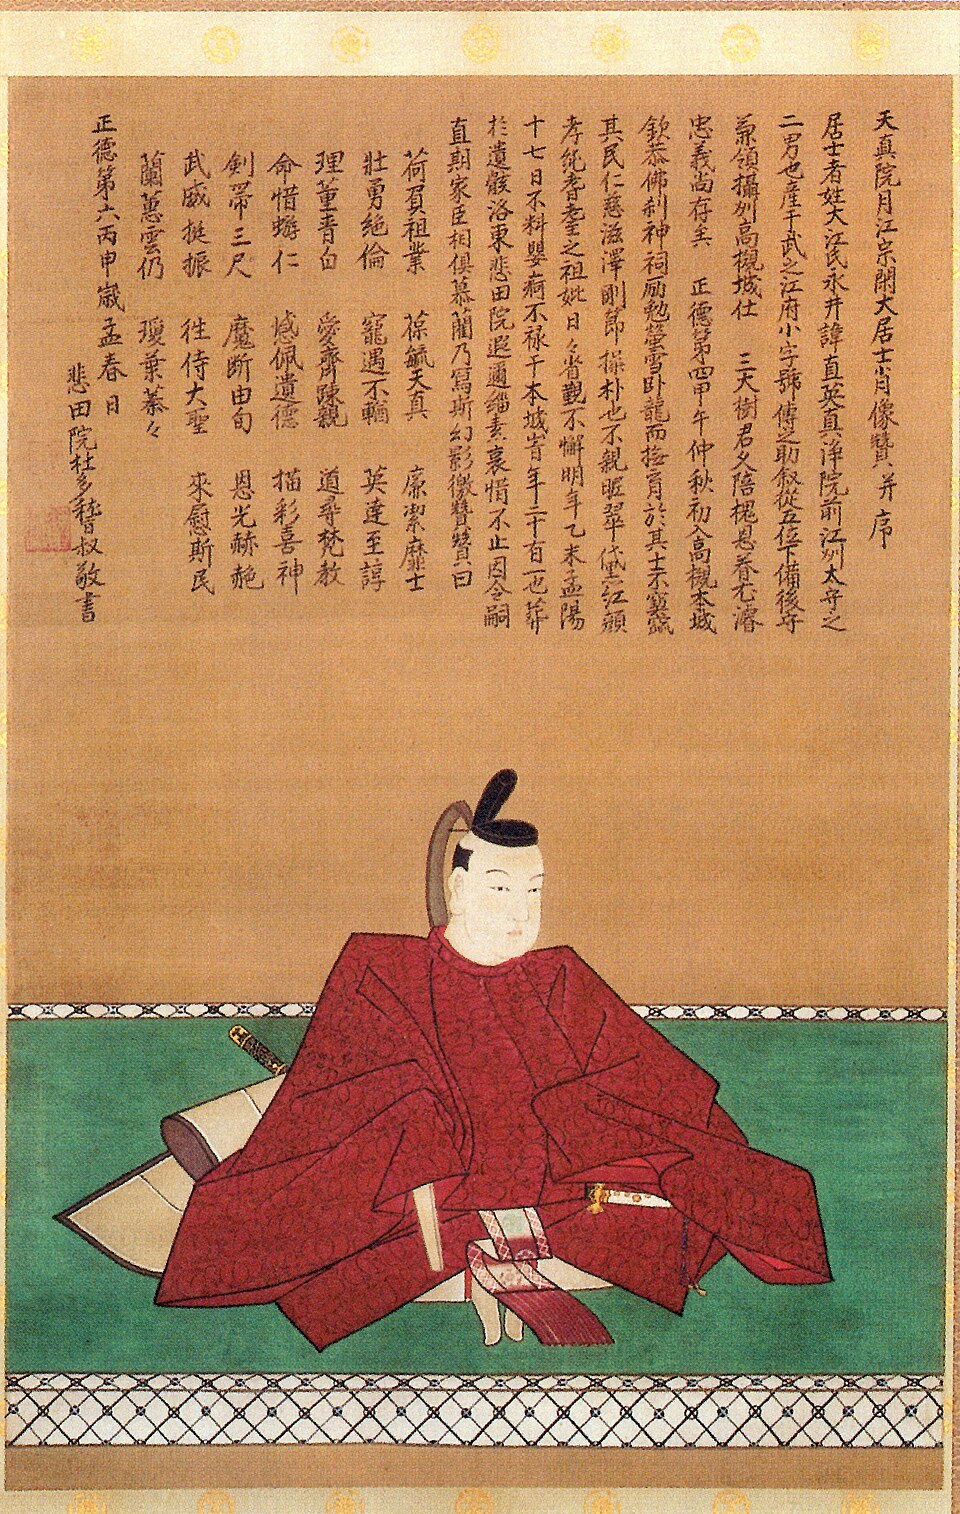 天真院月江宗閑大居士肖像贊并序
居士者姓大江氏永井諱直英真淨院前江州太守之
二男也産于武之江府小字號傳之助叙從五位下備後守
兼領攝州高槻城仕 三大樹君久陪槐恩眷尤濬
忠義尚存矣 正德第四甲午仲秋初入高槻本城
欽恭佛刹神祠励勉螢雪卧龍而撫育於其士示寬
其民仁慈滋澤剛節操朴也不親昵翠黛紅顏
孝純耆耋之祖妣日々省觀不懈明年乙未孟陽
十七日不料嬰痾不祿于本城峕年二十有一也葬
於遺骸洛東悲田院遐邇緇素哀惜不止因令嗣
直期家臣相俱慕藺乃寫斯幻影徵贊贊曰
荷負祖業 葆毓天真 廉潔靡士
壯勇絶倫 寵遇不輶 英達至諄
理董青白 愛齊踈親 道尋梵教
命惜蝣仁 感佩遺德 描彩喜神
劍帶三尺 魔斷由旬 恩光赫赩
武威挺振 徃侍大聖 來慰斯民
蘭蕙雲仍 瓊葉蓁々
正德第六丙申歲孟春日
悲田院杜多叔敬書